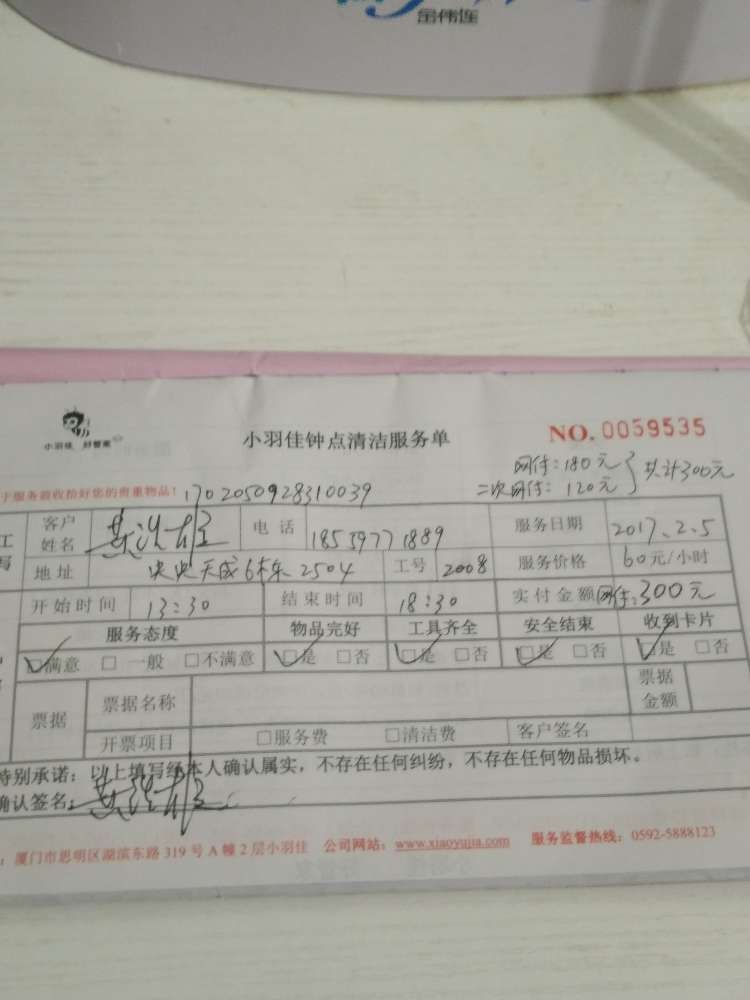 金伟连
小羽佳 好管家
小羽佳钟点清洁服务单
NO. 0059535
于服务前收拾好您的贵重物品！ 1702050928310039
网付：180元
二次网付：120元
共计300元
客户姓名 电话 18539771889 服务日期 2017.2.5
地址 央央天成6栋 2504 工号 2008 服务价格 60元/小时
开始时间 13:30 结束时间 18:30 实付金额 网付:300元
服务态度 物品完好 工具齐全 安全结束 收到卡片
☑满意 □一般 □不满意 ☑是 □否 ☑是 □否 ☑是 □否 ☑是 □否
票据 票据名称 票据金额
开票项目 □服务费 □清洁费 客户签名
特别承诺：以上填写经本人确认属实，不存在任何纠纷，不存在任何物品损坏。
确认签名：
：厦门市思明区湖滨东路 319 号 A 幢 2 层小羽佳 公司网站：www.xiaoyujia.com 服务监督热线：0592-5888123